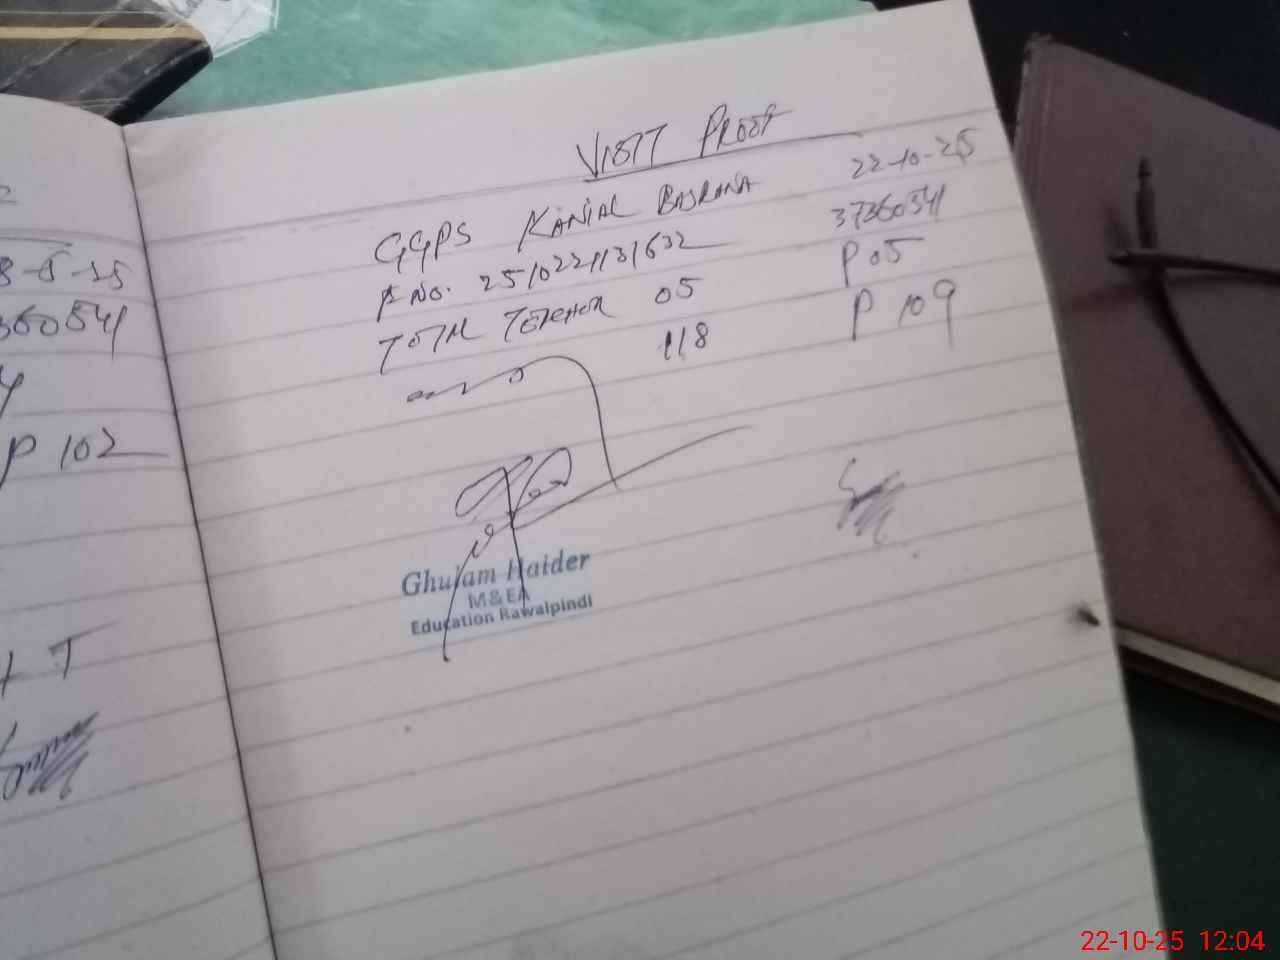 8-5-25
360541
P 102
VISIT PROOF
GGPS KANIAL BAJRANA 22-10-25
F No. 2510221131632 37360541
TOTAL TEACHER 05 P 05
118 P 109
Ghulam Haider
M&EA
Education Rawalpindi
22-10-25 12:04